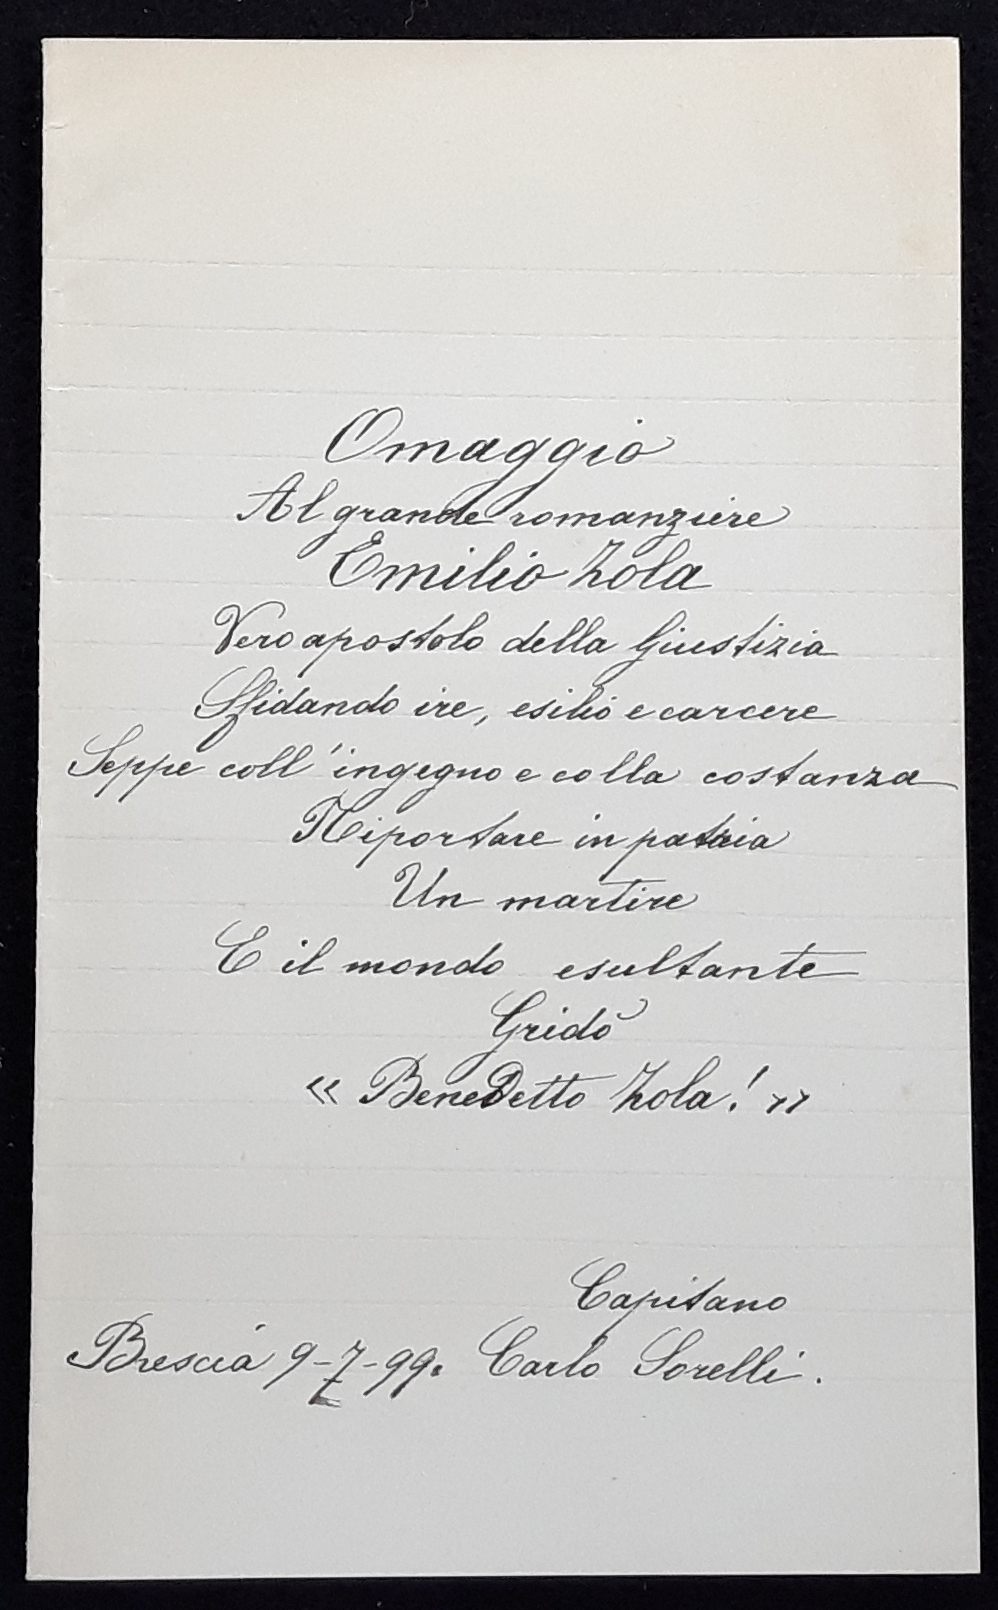 Omaggio
Al grande romanziere
Emilio Zola
Vero apostolo della Giustizia
Sfidando ire, esilio e carcere
Seppe coll'ingegno e colla costanza
Riportare in patria
Un martire
E il mondo esultante
Gridò
« Benedetto Zola! »
Capitano
Brescia 9-7-99. Carlo Sorelli.